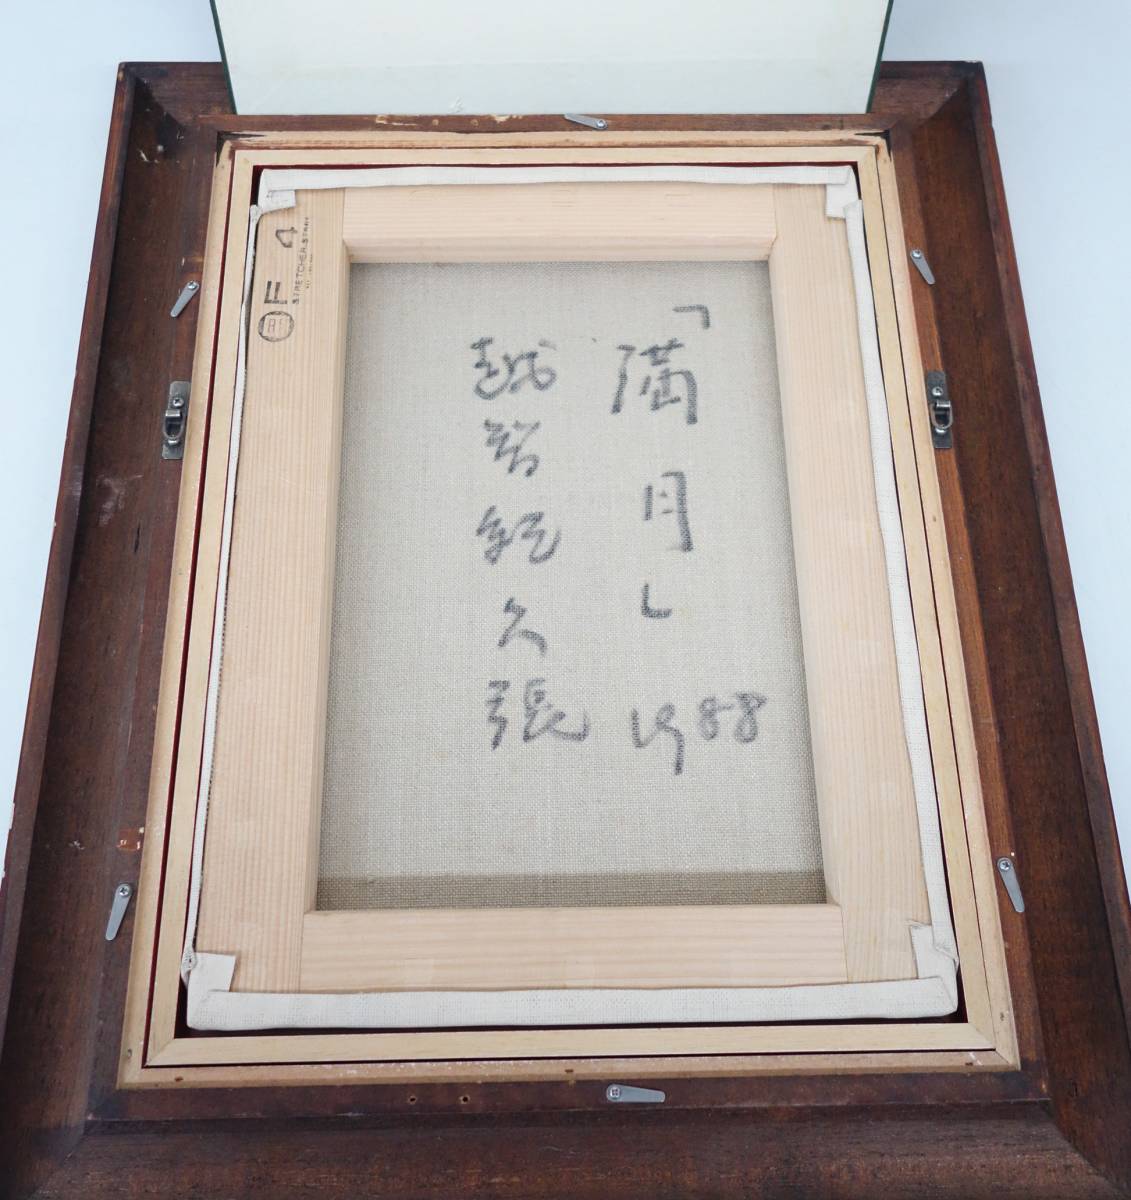 「満月」 1988
越智紀久張
F 4
STRETCHER STRIP